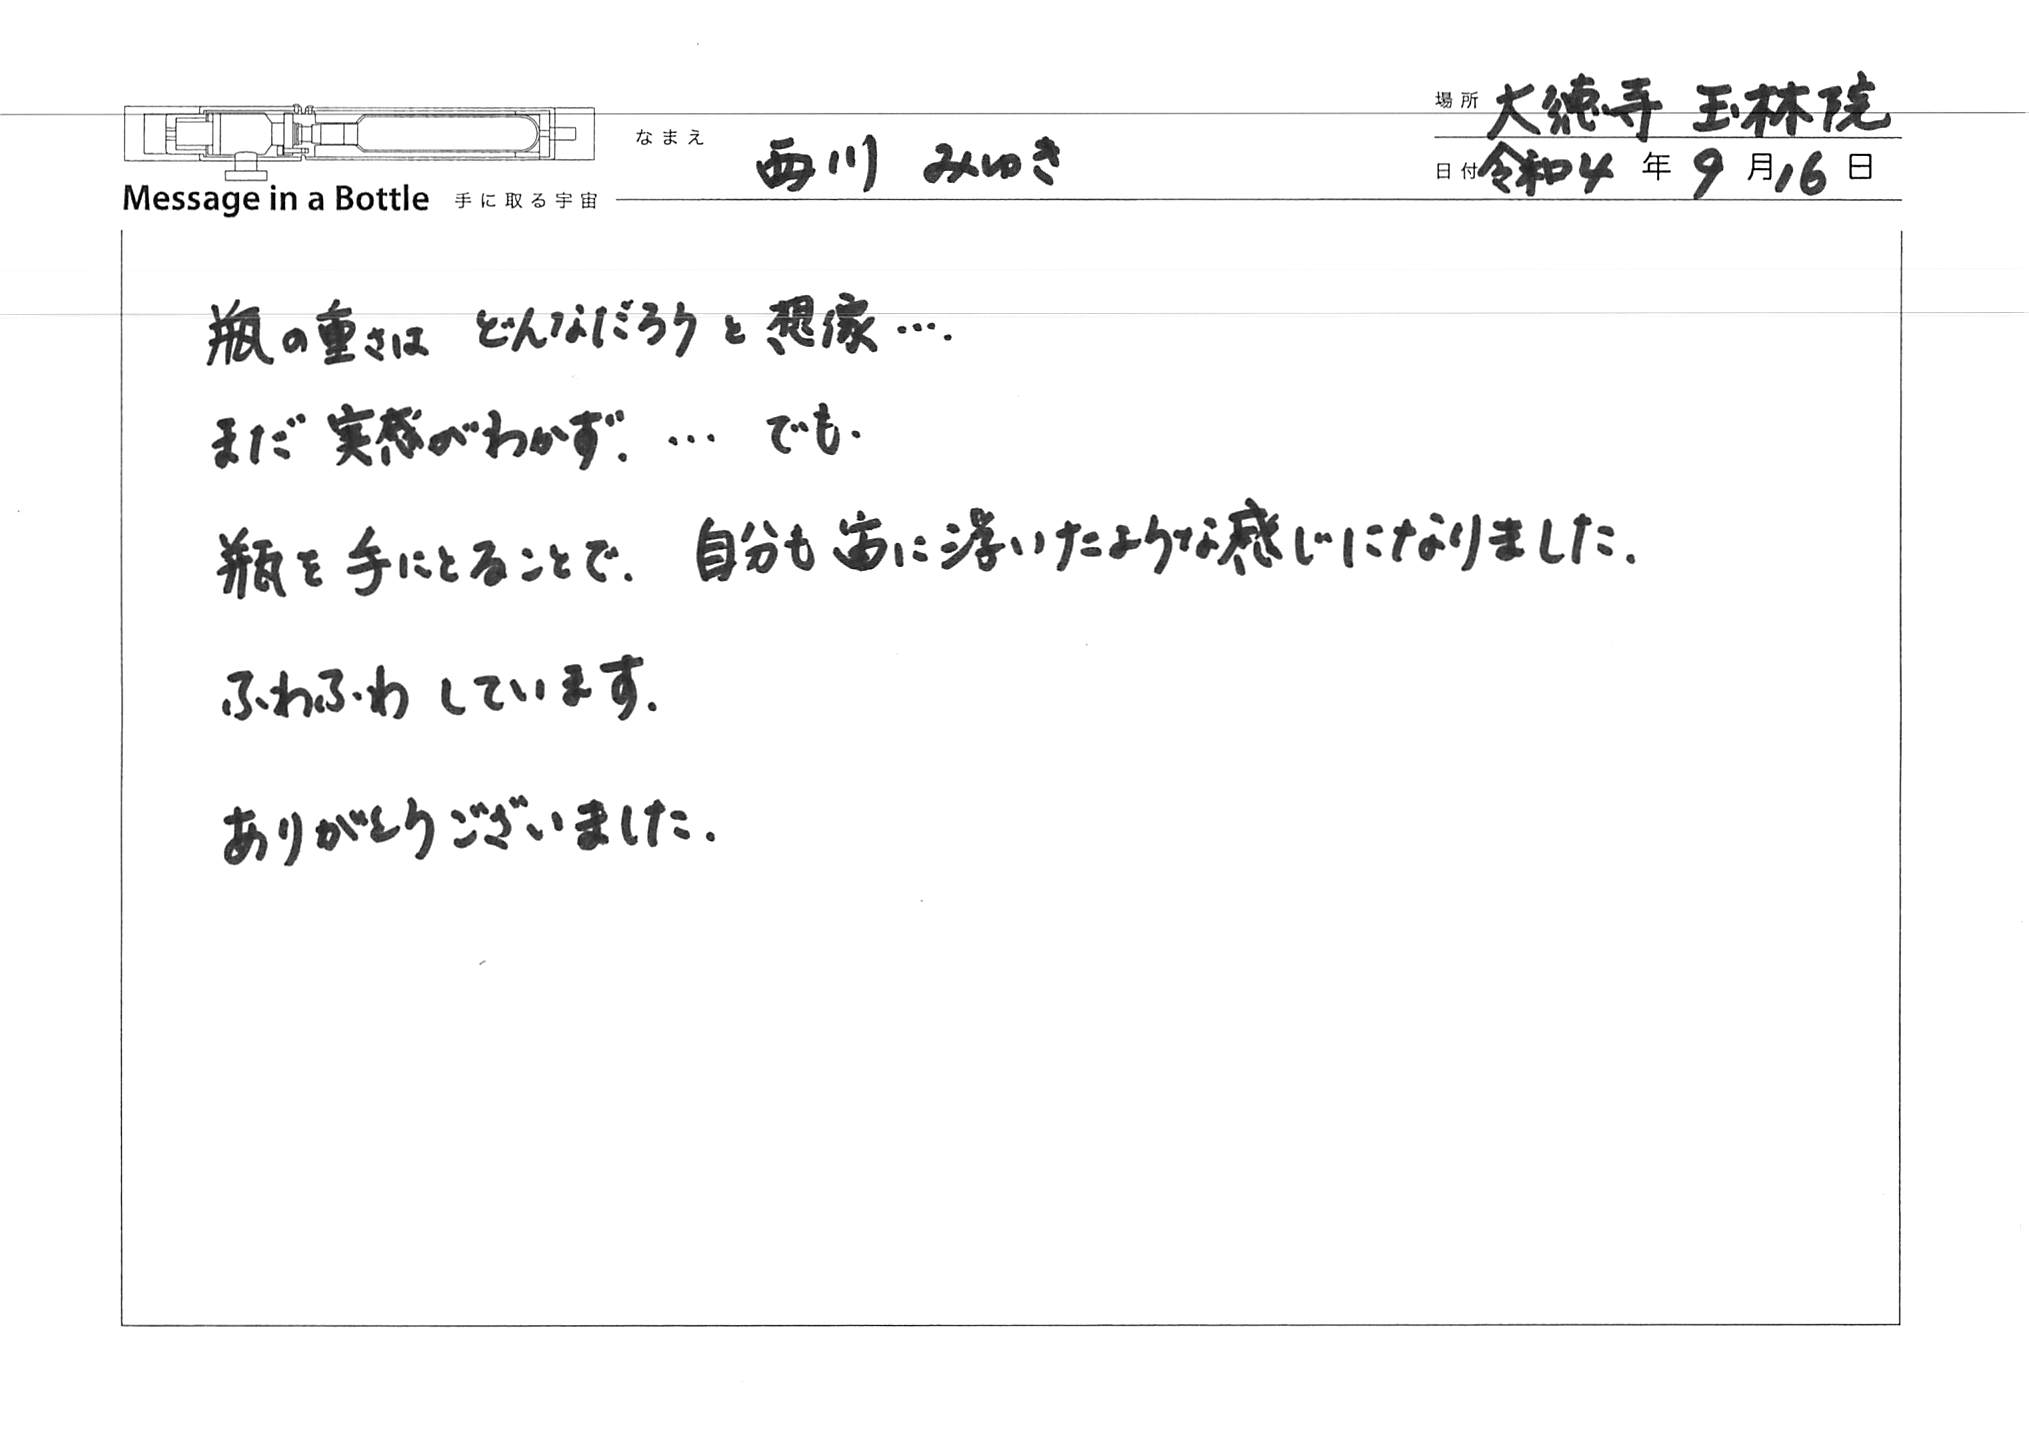 場所 大徳寺 玉林院
なまえ 西川 みゆき
日付 令和4年9月16日
Message in a Bottle 手に取る宇宙
瓶の重さは どんなだろうと想像….
まだ 実感がわかず. … でも.
瓶を手にとることで. 自分も宙に浮いたような感じになりました.
ふわふわ しています.
ありがとうございました.